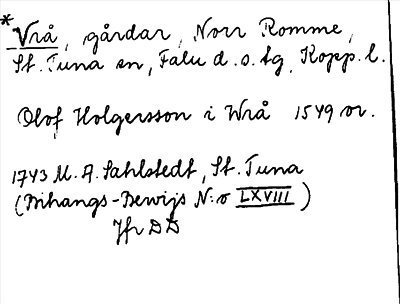 *Vrå, gårdar, Norr Romme,
St. Tuna sn, Falu d.s. tg, Kopp. l.
Olof Holgersson i Wrå 1549 or.
1743 M. A. Sahlstedt, St. Tuna
(Bihangs-Bewijs N:o LXVIII)
Jfr DD